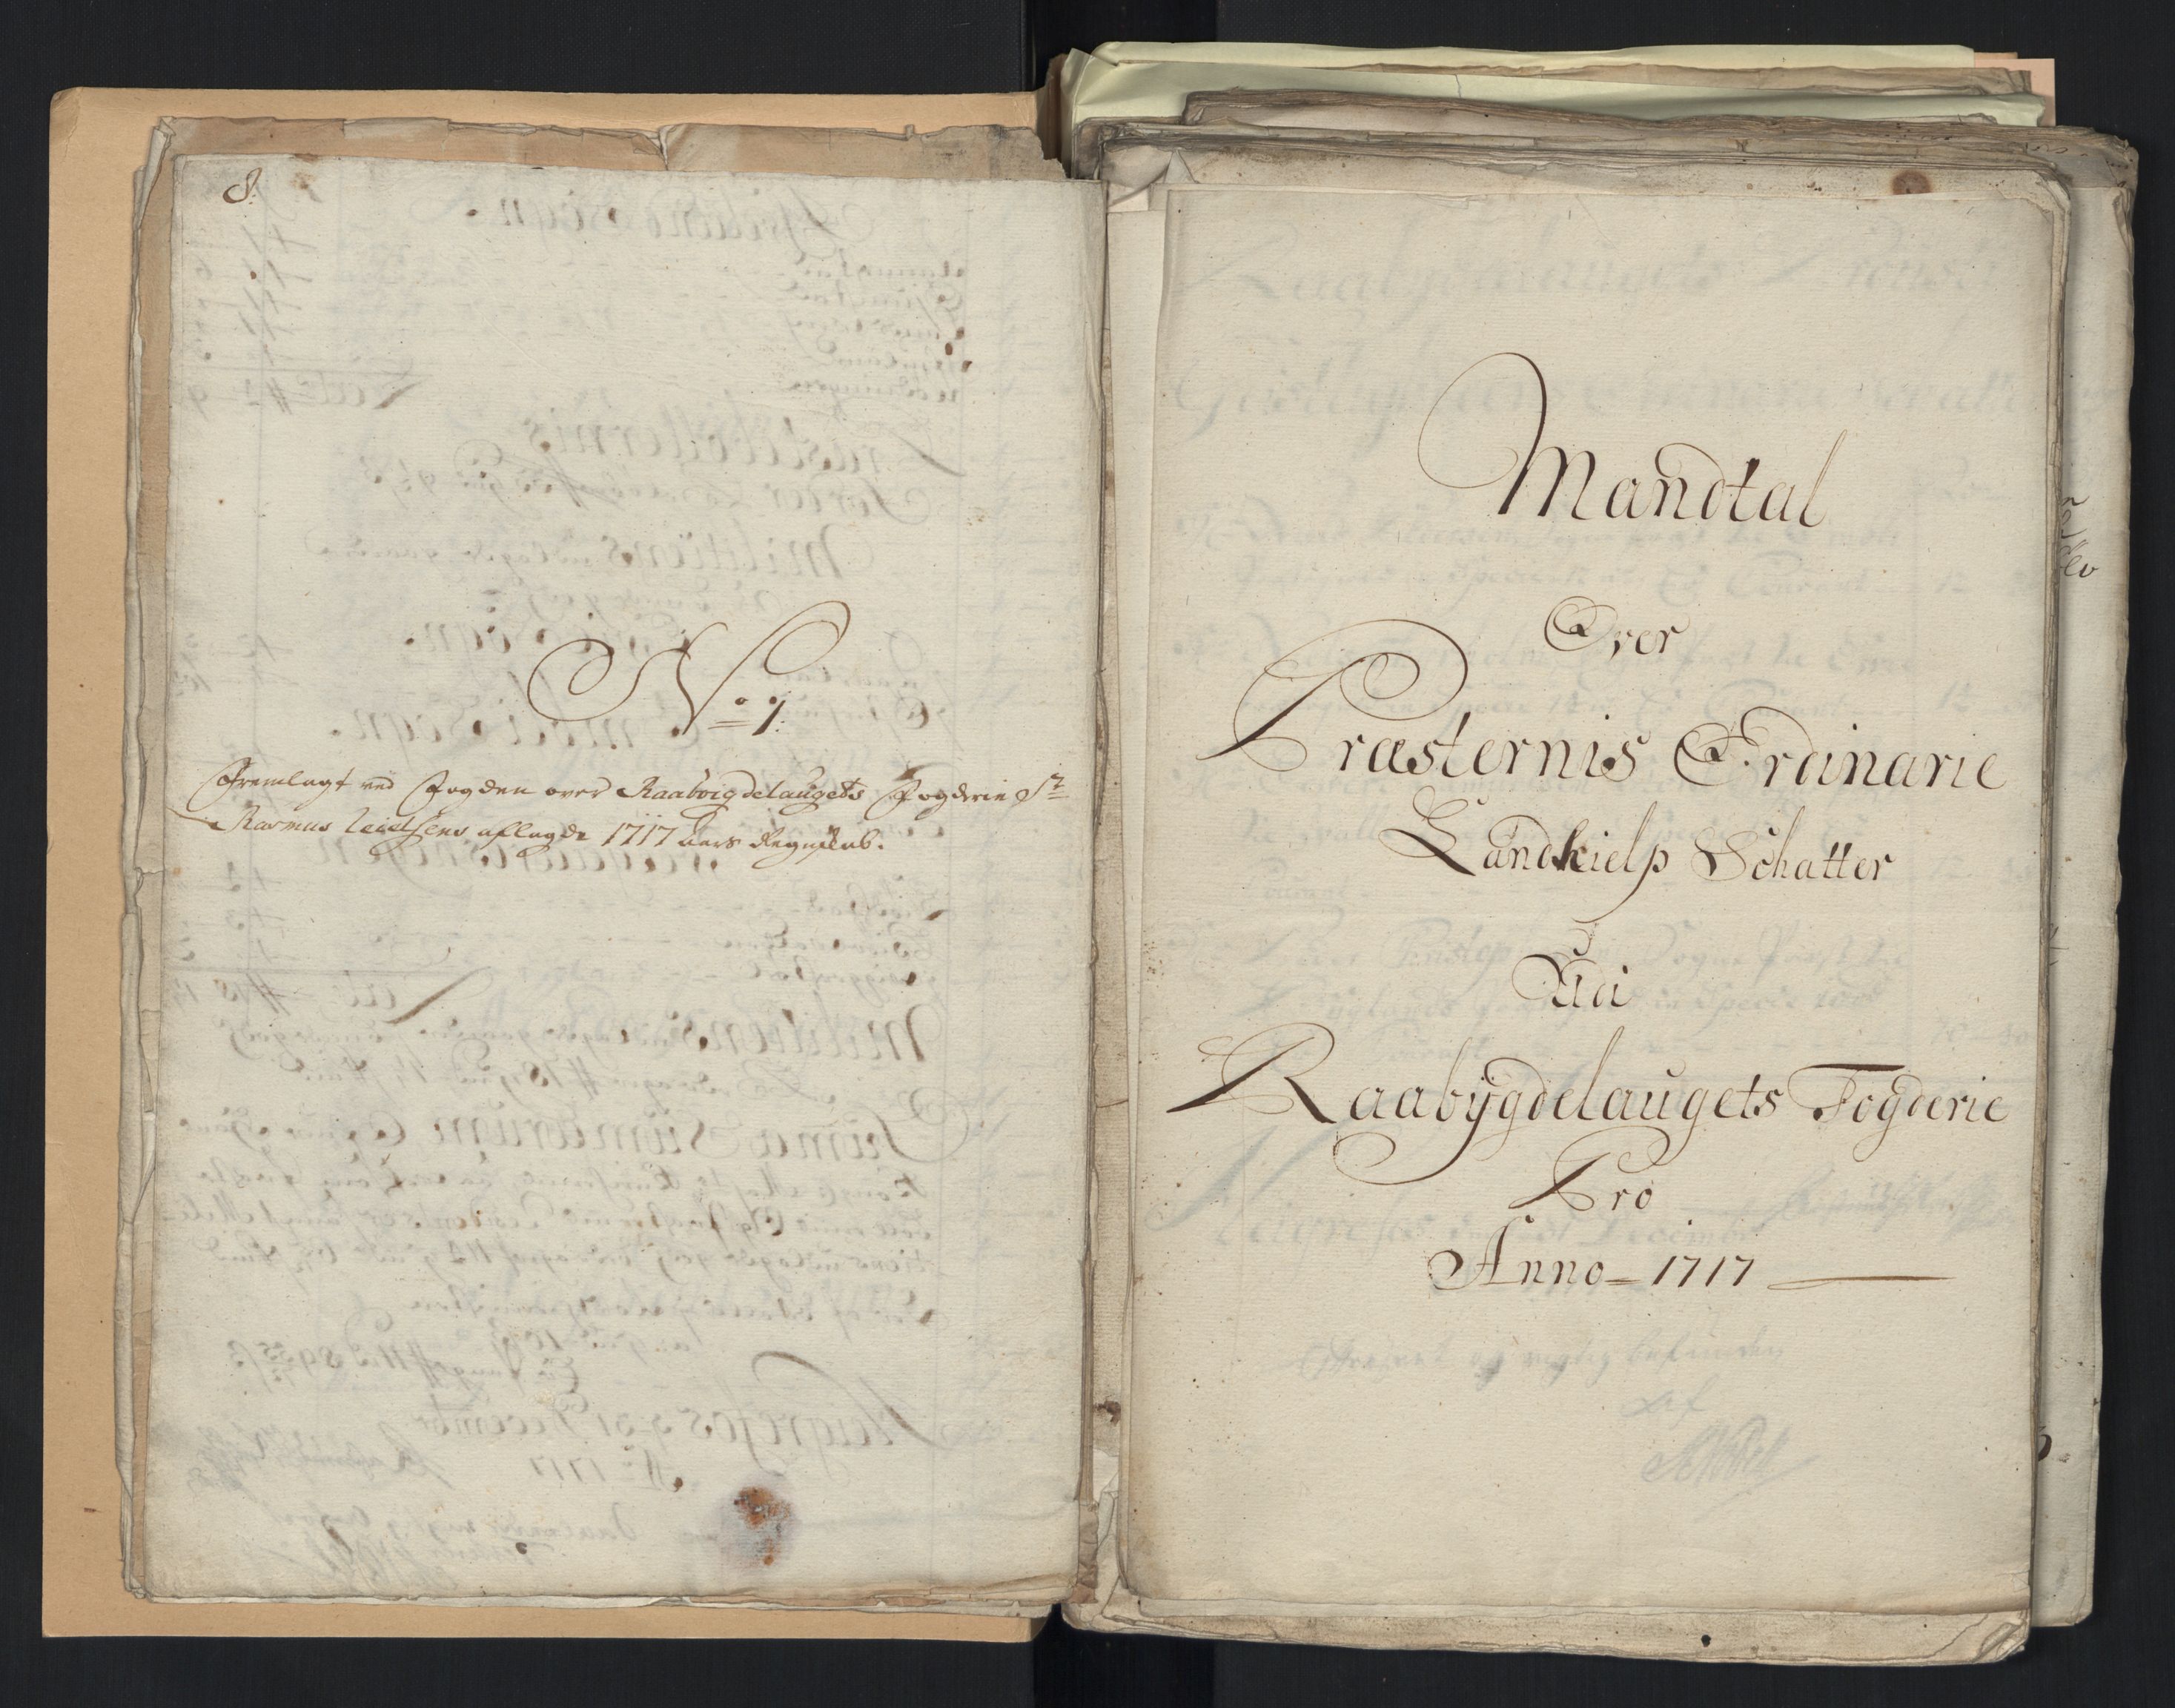 8.
No 1.
Fremlagt ved Fogden over Raabÿgdelaugets Fogderie Sr
Rasmus aflagde 1717 aars Regnskab.
Mandtal
Over
Præsternis Ordinarie
Landhielp Schatter
Udi
Raabÿgdelaugets Fogderie
Pro
Anno 1717